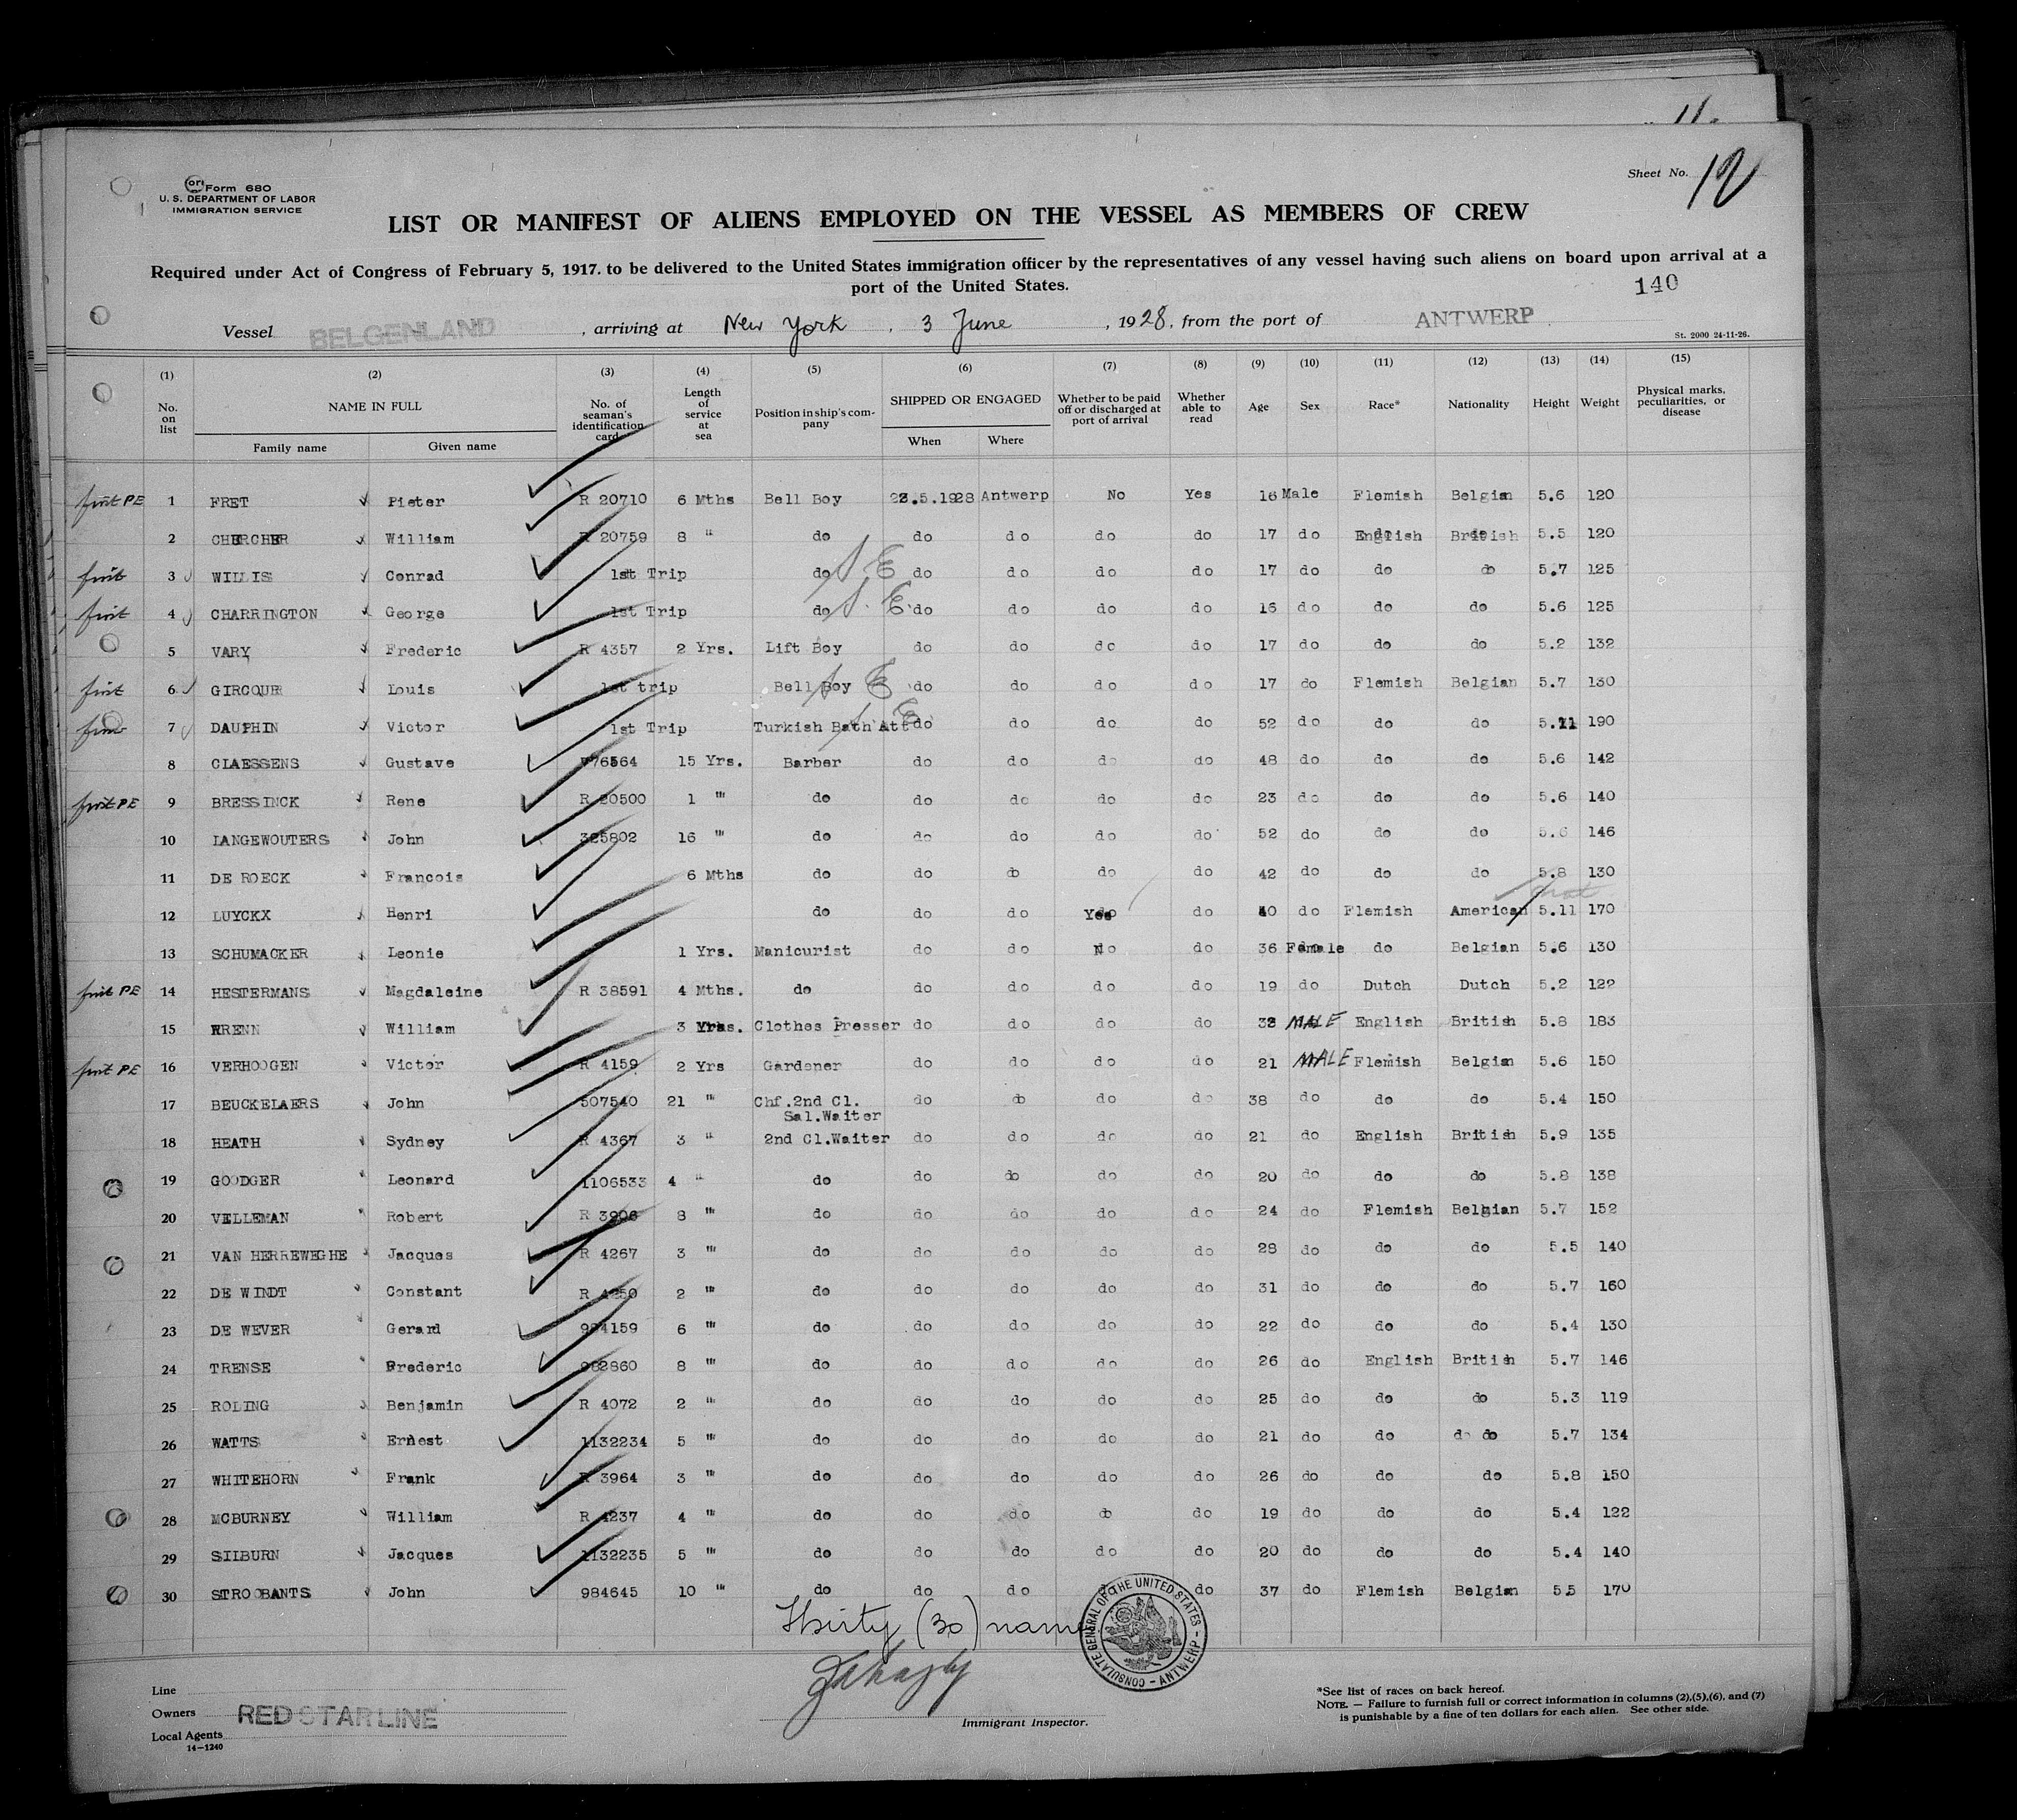 11.
Sheet No. 12
ori Form 680
U. S. DEPARTMENT OF LABOR
IMMIGRATION SERVICE
LIST OR MANIFEST OF ALIENS EMPLOYED ON THE VESSEL AS MEMBERS OF CREW
Required under Act of Congress of February 5, 1917. to be delivered to the United States immigration officer by the representatives of any vessel having such aliens on board upon arrival at a
port of the United States.
140
Vessel BELGENLAND , arriving at New York , 3 June , 1928, from the port of ANTWERP
St. 2000 24-11-26.
(1) (2) (3) (4) (5) (6) (7) (8) (9) (10) (11) (12) (13) (14) (15)
No. on list NAME IN FULL No. of seaman's identification card Length of service at sea Position in ship's company SHIPPED OR ENGAGED Whether to be paid off or discharged at port of arrival Whether able to read Age Sex Race* Nationality Height Weight Physical marks, peculiarities, or disease
Family name Given name When Where
first PE 1 FRET Pieter R 20710 6 Mths Bell Boy 23.5.1928 Antwerp No Yes 16 Male Flemish Belgian 5.6 120
2 CHERCHER William R 20759 8 " do do do do do 17 do English British 5.5 120
first 3 WILLIS Conrad 1st Trip do S.E do do do do 17 do do do 5.7 125
first 4 CHARRINGTON George 1st Trip do S.E do do do do 16 do do do 5.6 125
5 VARY Frederic R 4357 2 Yrs. Lift Boy do do do do 17 do do do 5.2 132
first 6 GIRCOUR Louis 1st trip Bell Boy do do do do 17 do Flemish Belgian 5.7 130
7 DAUPHIN Victor 1st Trip Turkish Bath Att do do do do 52 do do do 5.11 190
8 CLAESSENS Gustave 776564 15 Yrs. Barber do do do do 48 do do do 5.6 142
first PE 9 BRESSINCK Rene R 20500 1 " do do do do do 23 do do do 5.6 140
10 LANGEWOUTERS John 325802 16 " do do do do do 52 do do do 5.6 146
11 DE ROECK Francois 6 Mths do do do do do 42 do do do 5.8 130
12 LUYCKX Henri do do do Yes do 40 do Flemish American 5.11 170
13 SCHUMACKER Leonie 1 Yrs. Manicurist do do No do 36 Female do Belgian 5.6 130
first PE 14 HESTERMANS Magdaleine R 38591 4 Mths. do do do do do 19 do Dutch Dutch 5.2 122
15 WRENN William 3 Yrs. Clothes Presser do do do do 38 MALE English British 5.8 183
first PE 16 VERHOOGEN Victor R 4159 2 Yrs Gardener do do do do 21 MALE Flemish Belgian 5.6 150
17 BEUCKELAERS John 507540 21 " Chf.2nd Cl. do do do do 38 do do do 5.4 150
Sal.Waiter
18 HEATH Sydney R 4367 3 " 2nd Cl.Waiter do do do do 21 do English British 5.9 135
19 GOODGER Leonard 1106533 4 " do do do do do 20 do do do 5.8 138
20 VELLEMAN Robert R 3906 8 " do do do do do 24 do Flemish Belgian 5.7 152
21 VAN HERREWEGHE Jacques R 4267 3 " do do do do do 28 do do do 5.5 140
22 DE WINDT Constant R 4250 2 " do do do do do 31 do do do 5.7 160
23 DE WEVER Gerard 984159 6 " do do do do do 22 do do do 5.4 130
24 TRENSE Frederic 982860 8 " do do do do do 26 do English British 5.7 146
25 ROLING Benjamin R 4072 2 " do do do do do 25 do do do 5.3 119
26 WATTS Ernest 1132234 5 " do do do do do 21 do do do do 5.7 134
27 WHITEHORN Frank R 3964 3 " do do do do do 26 do do do 5.8 150
28 MCBURNEY William R 4237 4 " do do do do do 19 do do do 5.4 122
29 SILBURN Jacques 1132235 5 " do do do do do 20 do do do 5.4 140
30 STROOBANTS John 984645 10 " do do do do do 37 do Flemish Belgian 5.5 170
Thirty (30) names
CONSULATE GENERAL OF THE UNITED STATES - ANTWERP -
Line
Owners RED STAR LINE
Local Agents
14-1240
Immigrant Inspector.
*See list of races on back hereof.
NOTE. — Failure to furnish full or correct information in columns (2),(5),(6), and (7)
is punishable by a fine of ten dollars for each alien. See other side.